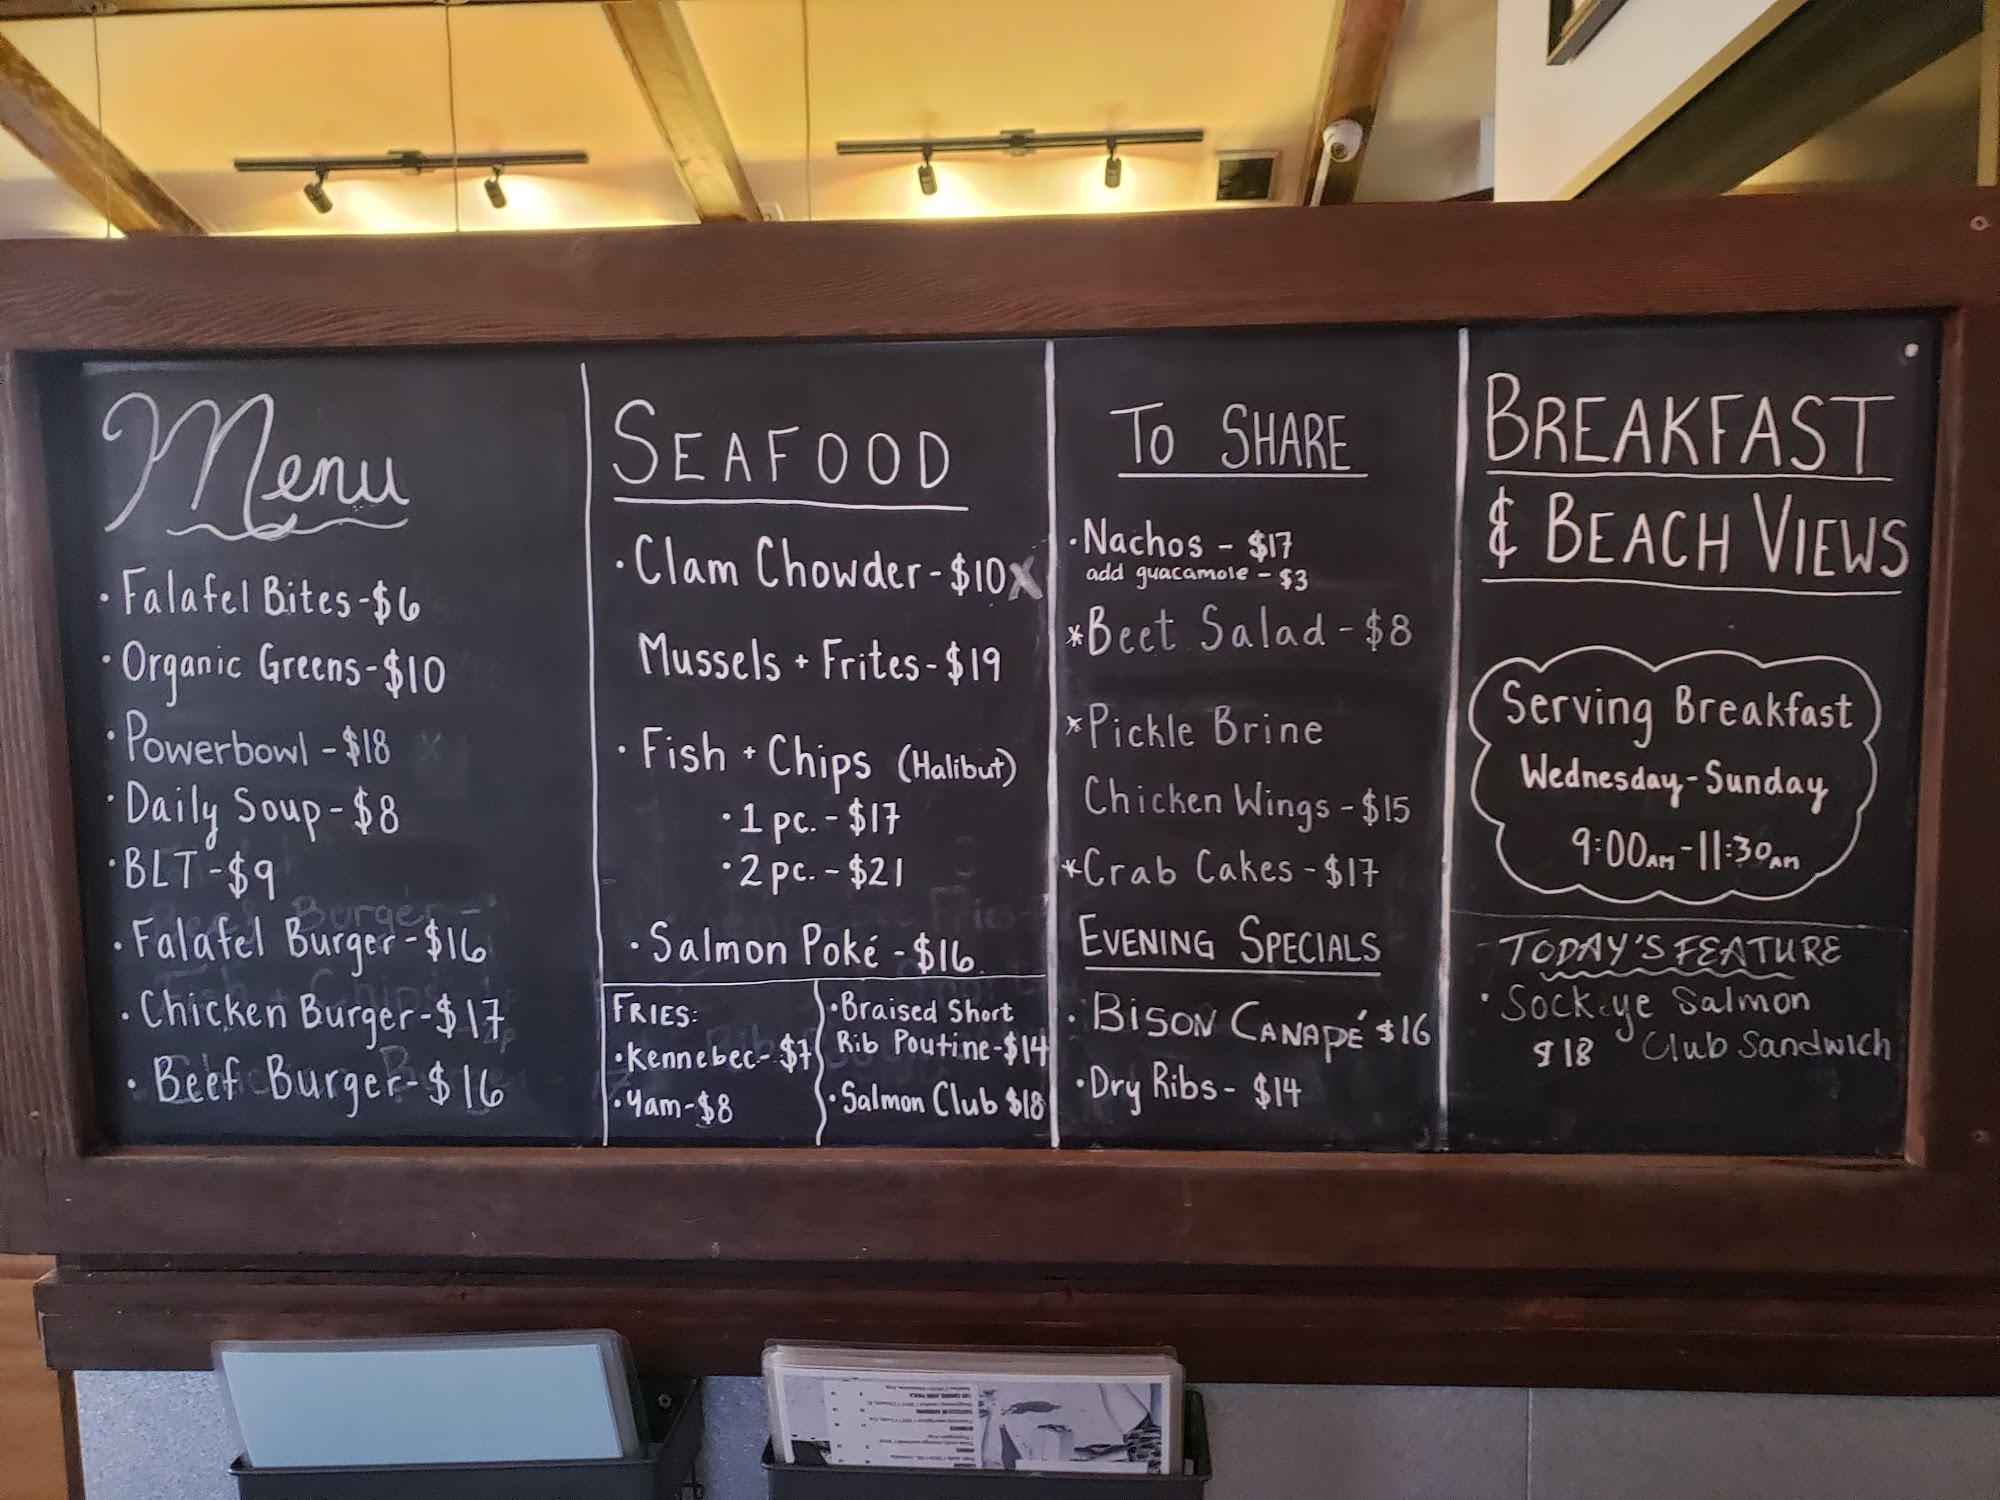 Menu
· Falafel Bites - $6
· Organic Greens - $10
· Powerbowl - $18 x
· Daily Soup - $8
· BLT - $9
· Falafel Burger - $16
· Chicken Burger - $17
· Beef Burger - $16
SEAFOOD
· Clam Chowder - $10 X
Mussels + Frites - $19
· Fish + Chips (Halibut)
· 1 pc. - $17
· 2 pc. - $21
· Salmon Poké - $16
FRIES:
· Kennebec - $7
· Yam - $8
· Braised Short
Rib Poutine - $14
· Salmon Club $18
TO SHARE
· Nachos - $17
add guacamole - $3
* Beet Salad - $8
* Pickle Brine
Chicken Wings - $15
* Crab Cakes - $17
EVENING SPECIALS
· BISON CANAPÉ $16
· Dry Ribs - $14
BREAKFAST
& BEACH VIEWS
Serving Breakfast
Wednesday - Sunday
9:00AM - 11:30AM
TODAY'S FEATURE
· Sockeye Salmon
$18 Club Sandwich